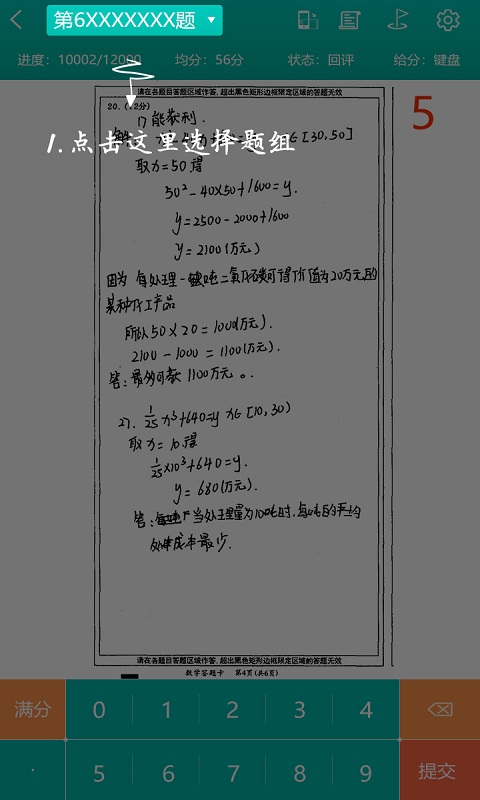 第6XXXXXXX题
进度：10002/12000 均分：56分 状态：回评 给分：键盘
请在各题目答题区域作答，超出黑色矩形边框限定区域的答题无效
20.(12分)
1.点击这里选择题组
5
1) 能获利.
[30,50]
取x=50得
50²-40×50+1600=y.
y=2500-2000+1600
y=2100(万元)
因为 每处理一吨二氧化碳可得价值为20万元的
某种化工产品
所以50×20=1000(万元).
2100-1000=1100(万元).
答:最多可获1100万元。
2). 1/25 x³+640=y x∈[10,30)
取x=10得
1/25×10³+640=y.
y=680(万元).
答: 当处理量为10吨时,每吨的平均
处理成本最少.
请在各题目答题区域作答，超出黑色矩形边框限定区域的答题无效
数学答题卡 第4页(共6页)
满分 0 1 2 3 4
· 5 6 7 8 9 提交